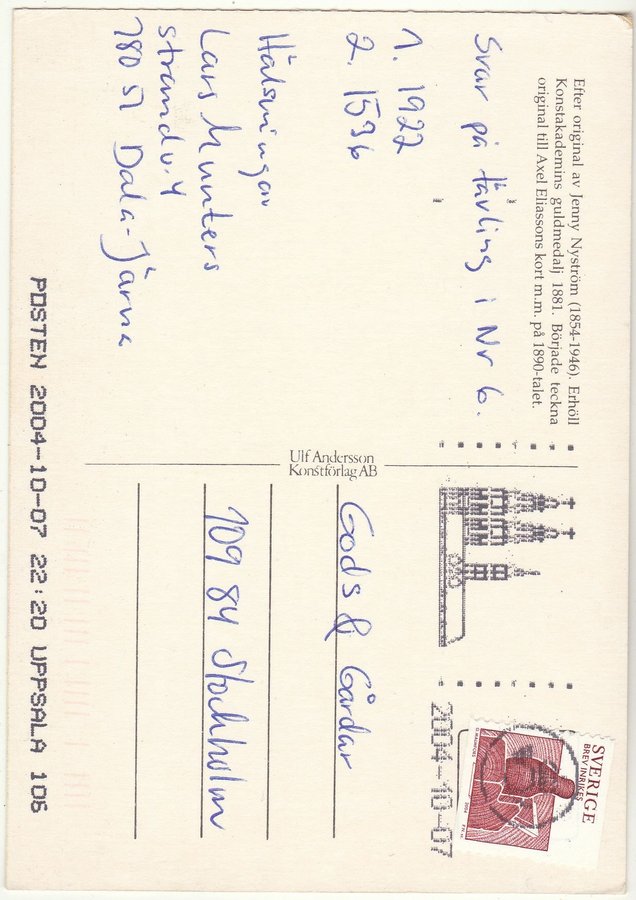 Efter original av Jenny Nyström (1854-1946). Erhöll
Konstakademins guldmedalj 1881. Började teckna
original till Axel Eliassons kort m.m. på 1890-talet.
Svar på tävling i Nr 6.
1. 1922
2. 1596
Hälsningar
Lars Munters
strandv. 4
780 51 Dala-Järna
Ulf Andersson
Konstförlag AB
Gods & Gårdar
109 84 Stockholm
SVERIGE
BREV INRIKES
2004
2004-10-07
POSTEN 2004-10-07 22:20 UPPSALA 106